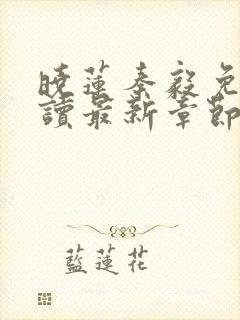 曉蓮秦毅免
讀最新章節
藍蓮花